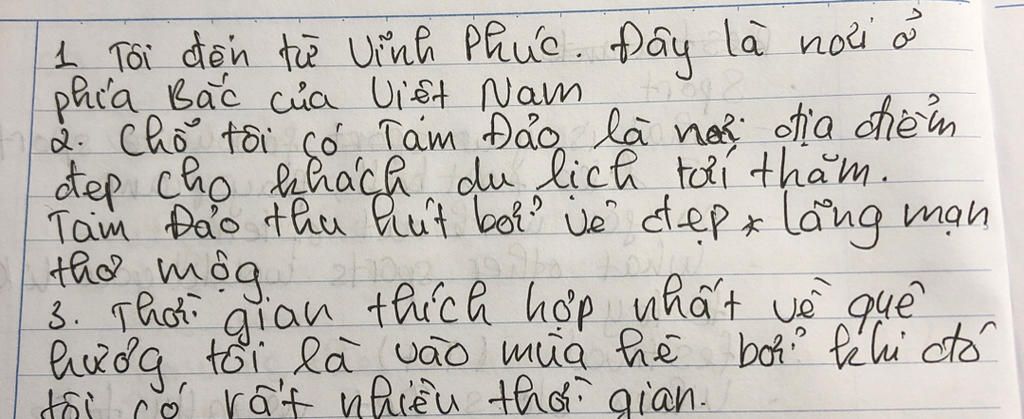 1 Tôi đến từ Vĩnh Phúc. Đây là nơi ở
phía Bắc của Việt Nam
2. Chỗ tôi có Tam Đảo là nơi địa điểm
đẹp cho khách du lịch tới thăm.
Tam Đảo thu hút bởi vẻ đẹp * lãng mạn
thơ mộg
3. Thời gian thích hợp nhất về quê
hươg tôi là vào mùa hè bởi khi đó
tôi có rất nhiều thời gian.